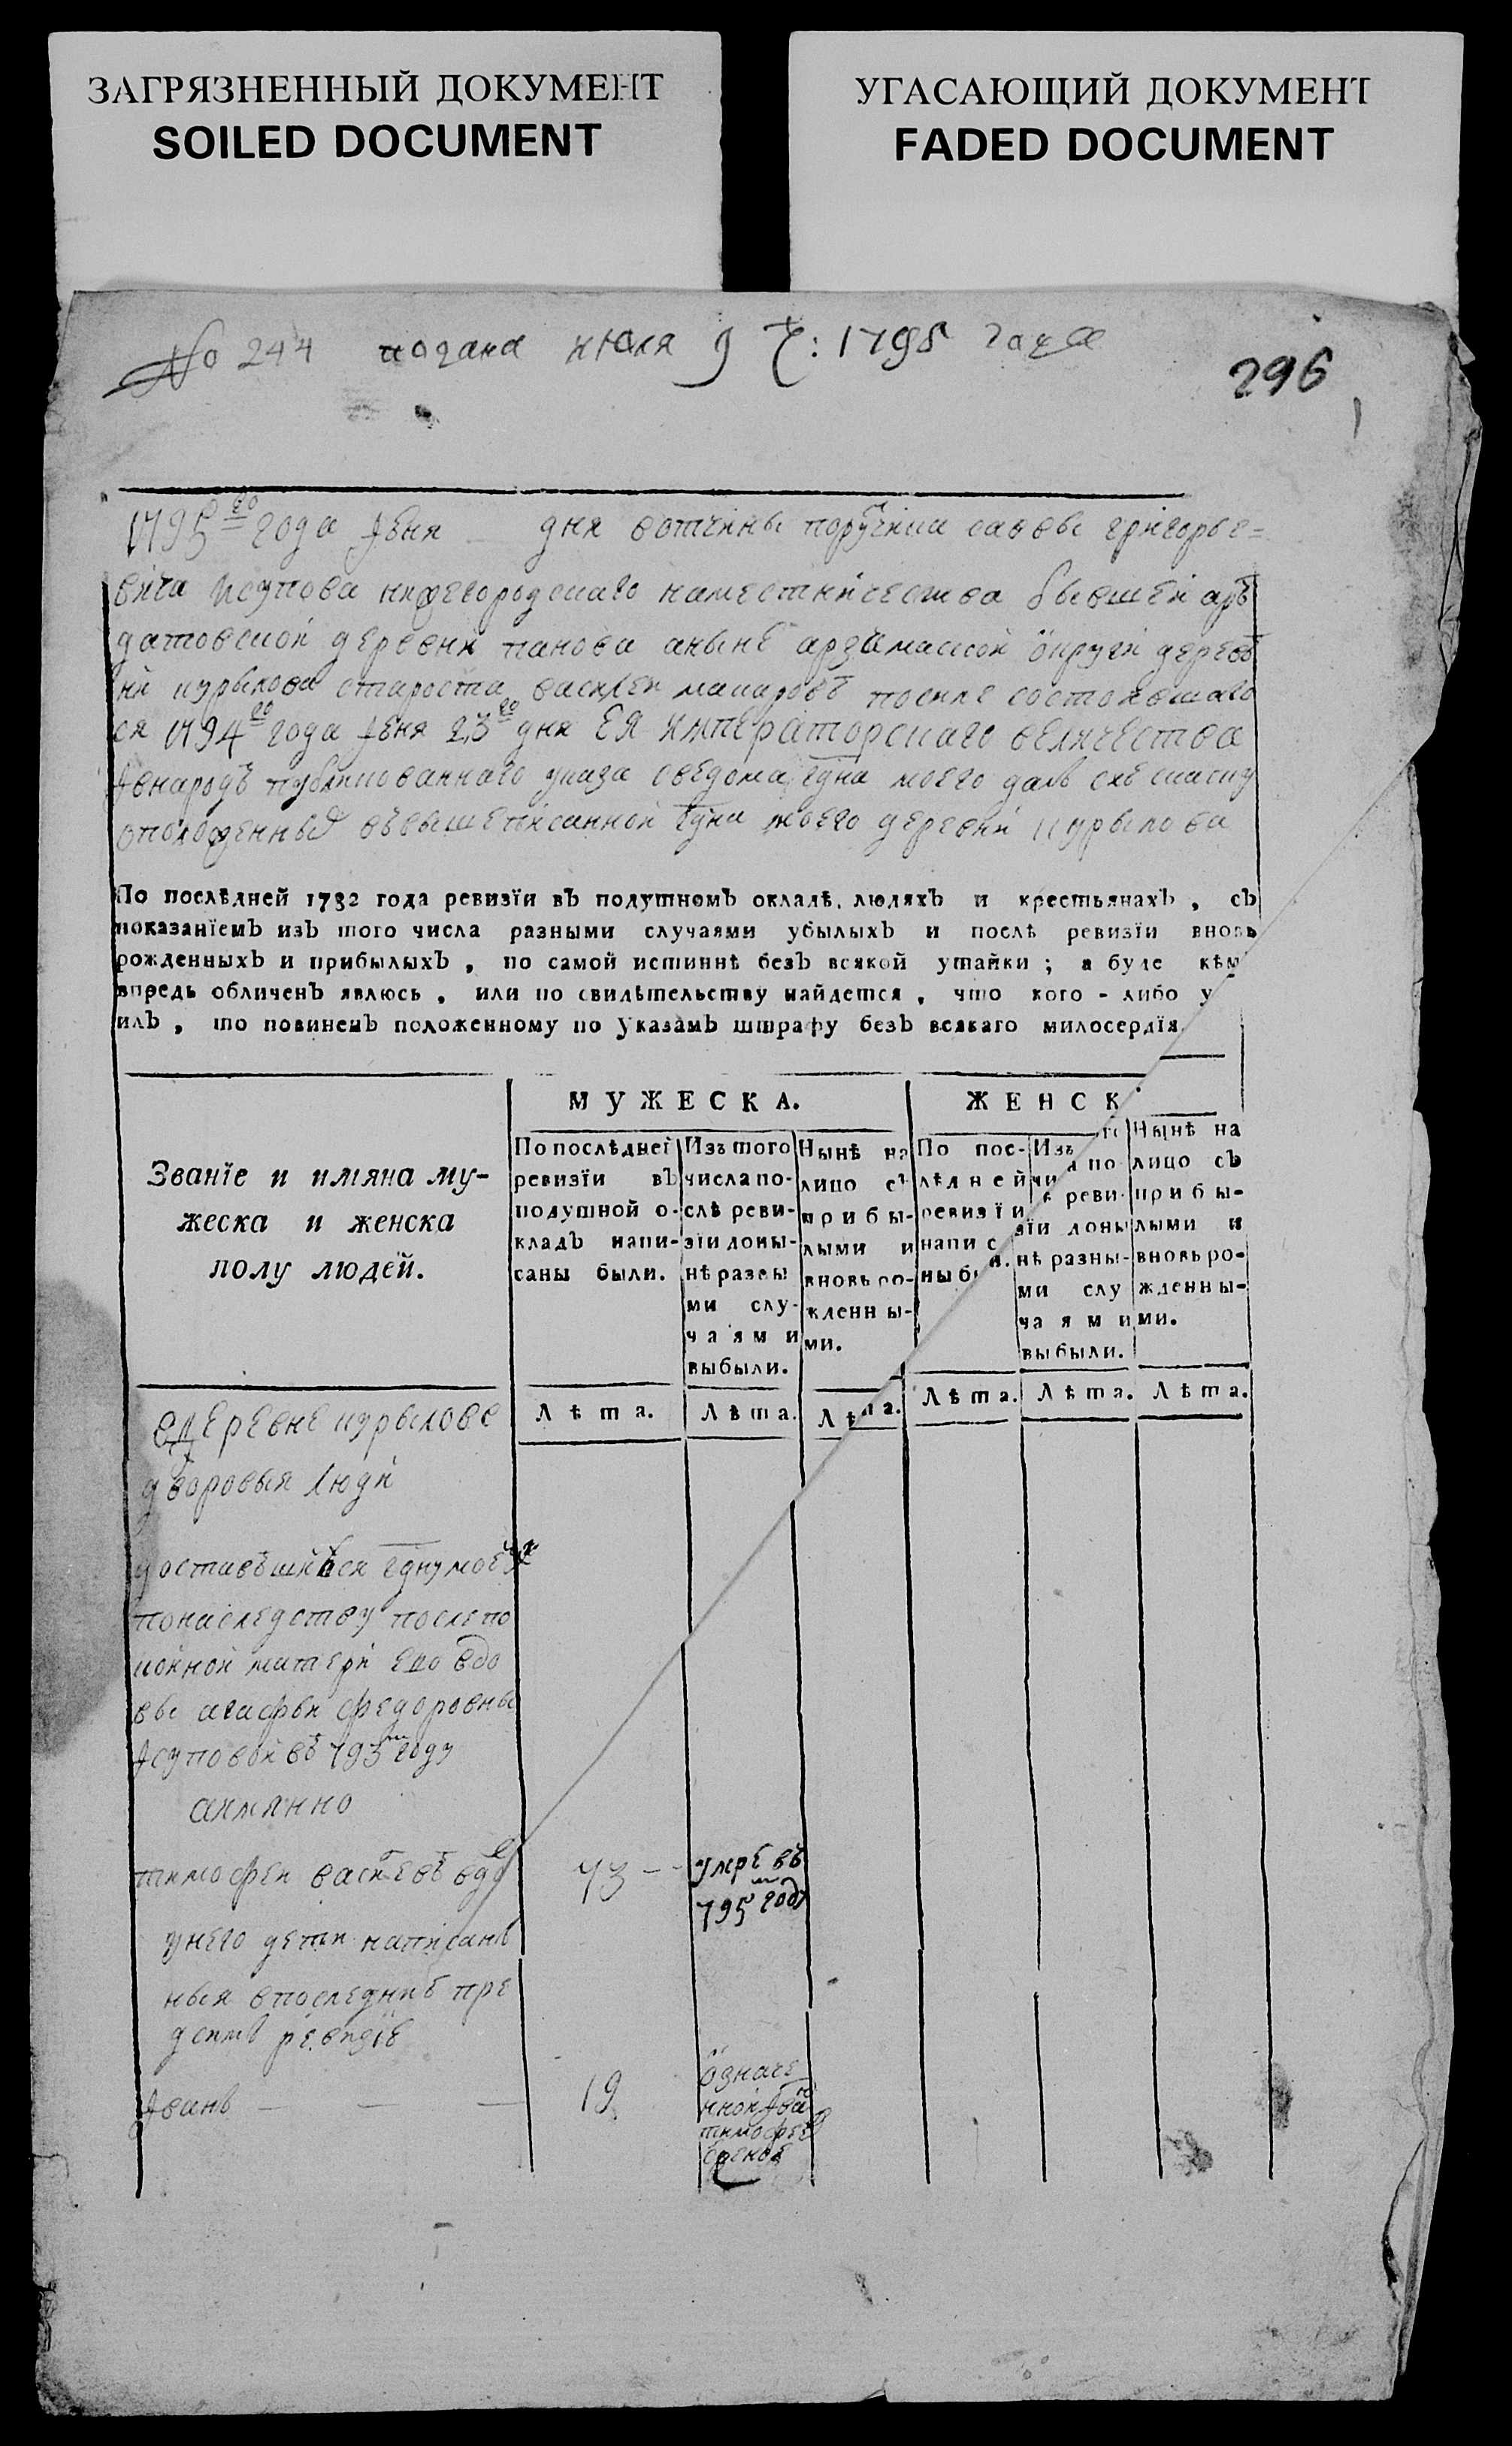 ЗАГРЯЗНЕННЫЙ ДОКУМЕНТ
SOILED DOCUMENT
УГАСАЮЩИЙ ДОКУМЕНТ
FADED DOCUMENT
No 244 подана июля 9 ч: 1795 года
296
1795го года июня дня вотчины порутчика саввы григорье=
вича Исупова нижегородскаго наместничества бывшей ар
датовской деревни панова а ныне арзамаской округи дерев
ни цурыкова староста василей макаровъ после состоявшаго
ся 1794го года июня 23го дня ЕЯ императорскаго величества
в народъ публикованнаго указа сведома гдна моего далъ сию скаску
о положенных в вышеписанной гдна моего деревни цурыкова
По послѣдней 1782 года ревизїи въ подушномъ окладѣ, людяхъ и крестьянахъ, съ
показанїемъ изъ того числа разными случаями убылыхъ и послѣ ревизїи вновь
рожденныхъ и прибылыхъ, по самой истиннѣ безъ всякой утайки; а буде кѣмъ
впредь обличенъ явлюсь, или по свидѣтельству найдется, что кого-либо у
илъ, то повиненъ положенному по указамъ штрафу безъ всякаго милосердїя.
МУЖЕСКА.
ЖЕНСК
Званїе и имяна му-
жеска и женска
полу людей.
По послѣдней
ревизїи въ
подушной о-
кладъ напи-
саны были.
Изъ того
числа по-
слѣ реви-
зїи доны-
нѣ разны
ми слу-
чаями
выбыли.
Нынѣ на
лицо съ
прибы-
лыми и
вновь ро-
жденны-
ми.
По пос-
лѣдней
ревизїи
напис
ны б
Изъ
чи по
реви-
зїи доны
нѣ разны-
ми слу
чаями
выбыли.
Нынѣ на
лицо съ
прибы-
лыми и
вновь ро-
жденны-
ми.
Лѣта.
Лѣта.
Лѣта.
Лѣта.
Лѣта.
Лѣта.
в деревне цурыкове
дворовыя люди
доставъшияся гдну моему
по наследству после по
койной матери ево вдо
вы агафьи федоровны
исуповой въ 793м году
а имянно
тимофей васильевъ вдов 43 -- умре въ
795м году
у него дети написан
ныя в последней пре
дсимъ ревизїе
иванъ — — — 19 означе
нной иван
тимофеев